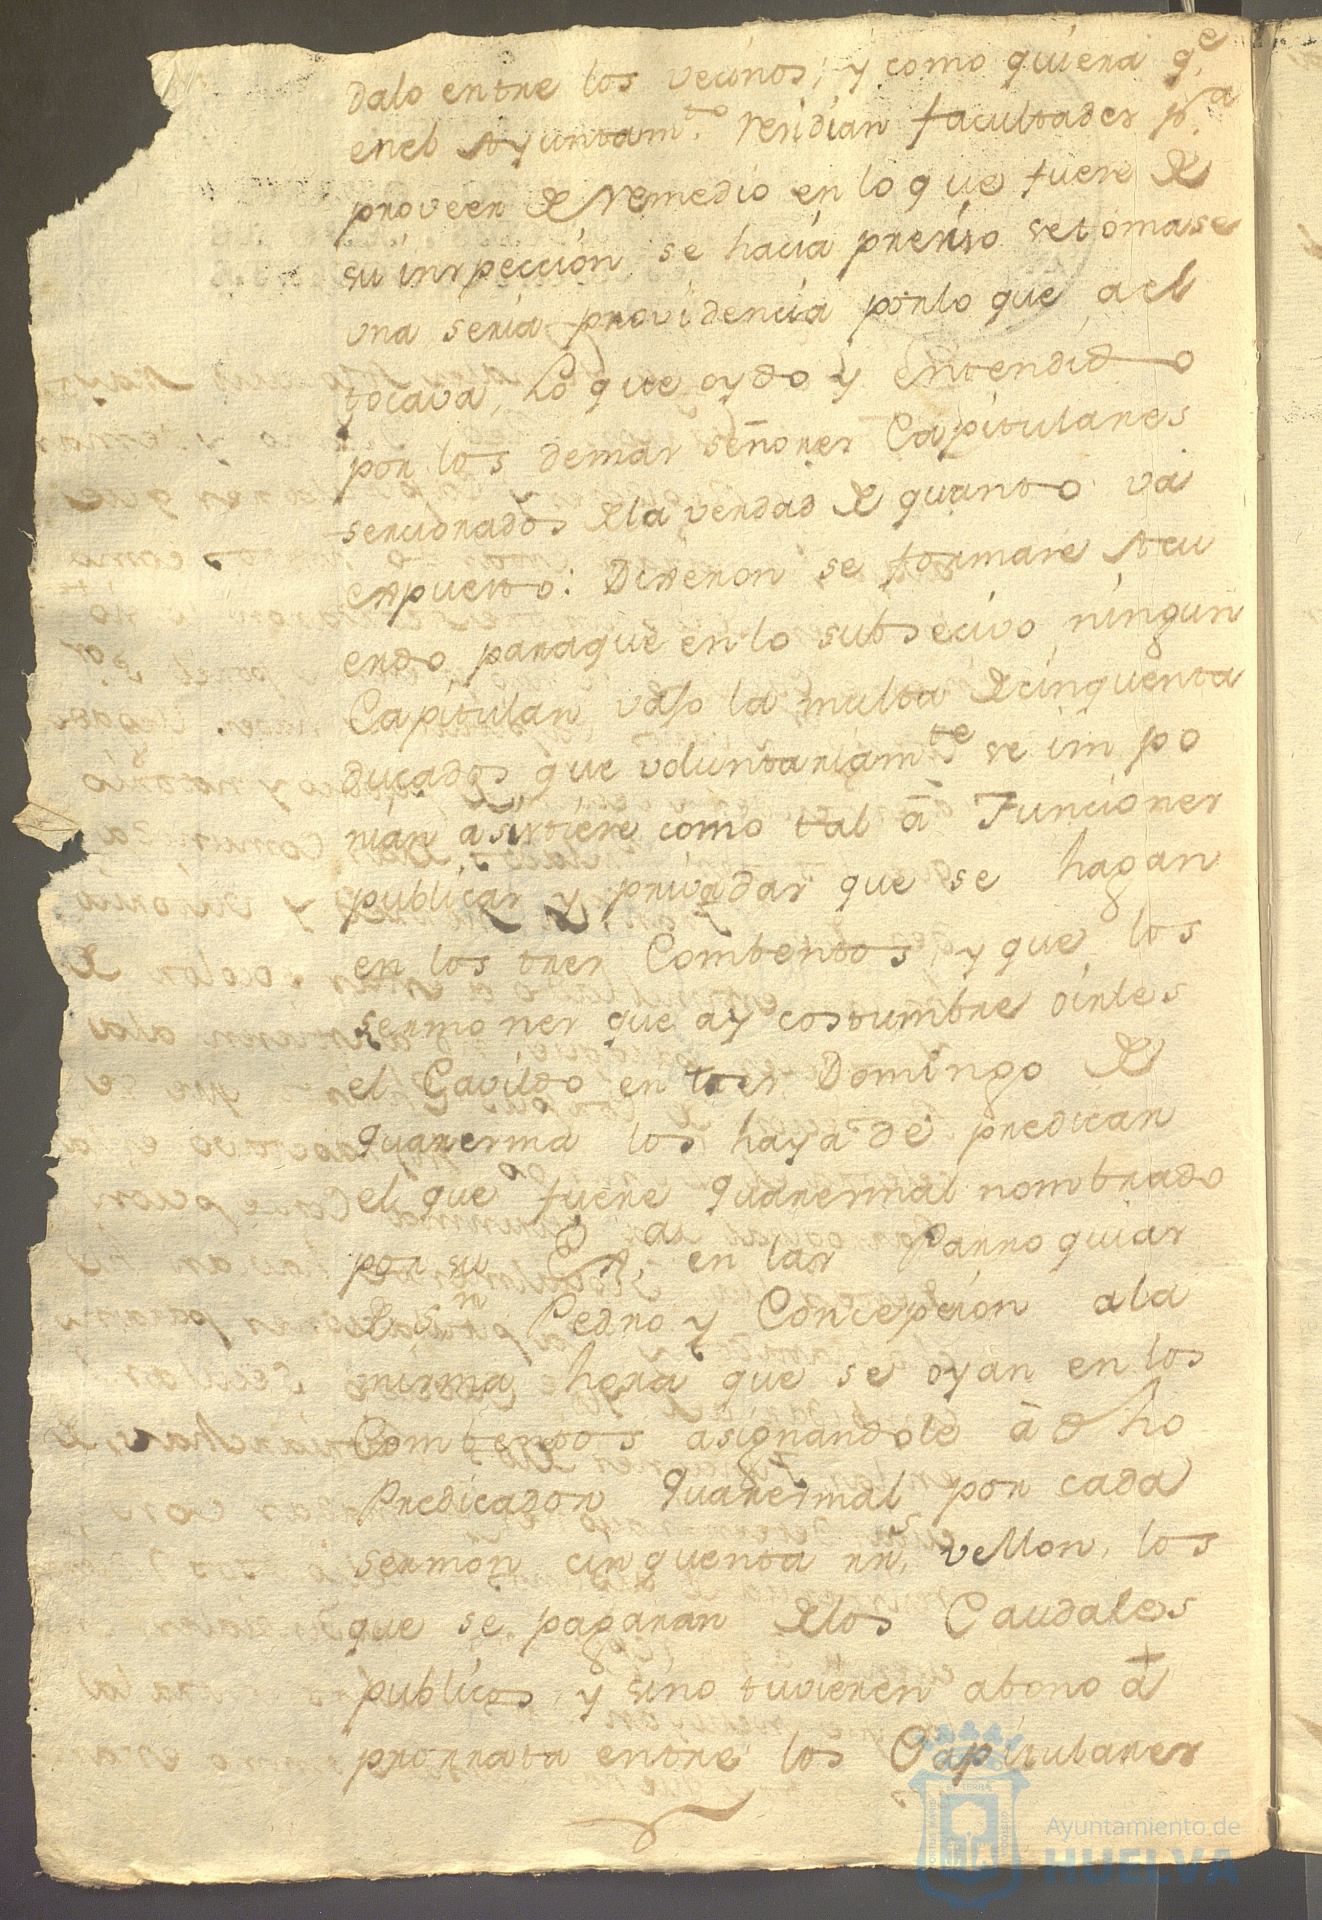 dalo entre los vecinos; y como quiera q.e
enel Ayuntam.to residian facultades p.a
proveer de remedio en lo que fuere de
su inspeccion se hacia preciso se tomase
una seria providencia por lo que a el
tocava, lo que oydo y entendido
por los demas señores Capitulares
sercionados de la verdad de quanto va
expuesto: Dixeron se formase Acu
erdo para que en lo subsecivo ningun
Capitular vajo la multa de cinquenta
ducados que voluntariam.te se impo
nian asistiere como tal â Funciones
publicas y privadas que se hagan
en los tres Combentos, y que los
sermones que ay costumbre oirles
el Cavildo en tres Domingo de
Quaresma los haya de predicar
el que fuere Quaresmal nombrado
por su en las Parroquias
Pedro y Concepcion a la
misma hora que se oyan en los
Combentos asignandole â dho
Predicador Quaresmal por cada
sermon cinquenta rr.s vellon, los
que se pagaran de los Caudales
publicos, y sino tuvieren abono â
prorrata entre los Capitulares
Ayuntamiento de
HUELVA